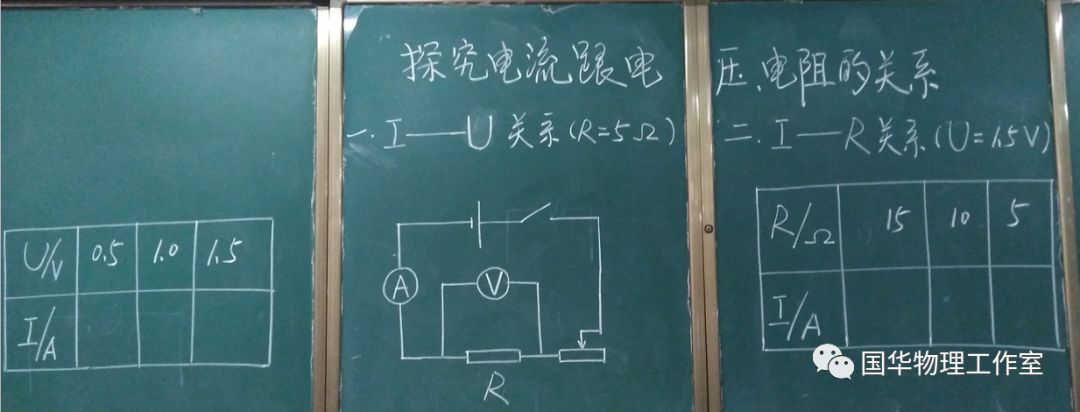 探究电流跟电压、电阻的关系
一.I——U关系(R=5Ω)
二.I—R关系(U=1.5V)
U/V 0.5 1.0 1.5
I/A
A
V
R
R/Ω 15 10 5
I/A
国华物理工作室